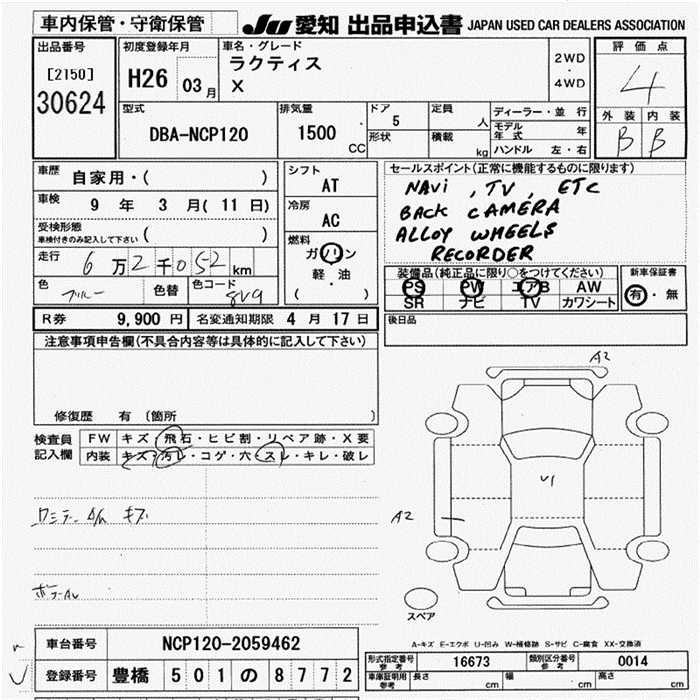 車内保管・守衛保管
JU 愛知 出品申込書 JAPAN USED CAR DEALERS ASSOCIATION
出品番号
[2150]
30624
初度登録年月
H26 03月
車名・グレード
ラクティス
X
2WD
・
4WD
評価点
4
外装 内装
B B
型式
DBA-NCP120
排気量
1500
cc
ドア
5
形状
定員
人
積載
kg
ディーラー・並行
モデル年式 年
ハンドル 左・右
車歴
自家用・( )
車検
9 年 3 月( 11 日)
受検形態
車検付きのみ記入して下さい ( )
走行
6万2千052km
色
ブルー
色替
色コード
8V9
シフト
AT
冷房
AC
燃料
ガソリン
軽・油
( )
セールスポイント(正常に機能するものに限ります)
NAVi , TV , ETC
BACK CAMERA
ALLOY WHEELS
RECORDER
装備品(純正品に限り○をつけてください)
PS PW エアB AW
SR ナビ TV カワシート
新車保証書
有・無
R券 9,900 円 名変通知期限 4 月 17 日
後日品
注意事項申告欄(不具合内容等は具体的に記入して下さい)
修復歴 有 〔箇所 〕
検査員
記入欄
FW キズ・飛石・ヒビ割・リペア跡・X要
内装 キズ・汚レ・コゲ・穴・スレ・キレ・破レ
キズ
A2
U1
A2
スペア
A-キズ E-エクボ U-凹み W-補修跡 S-サビ C-腐食 XX-交換済
車台番号 NCP120-2059462
登録番号 豊橋 501の8772
形式指定番号
参考
16673
類別区分番号
参考
0014
車庫証明用
参考
長さ cm 幅 cm 高さ cm